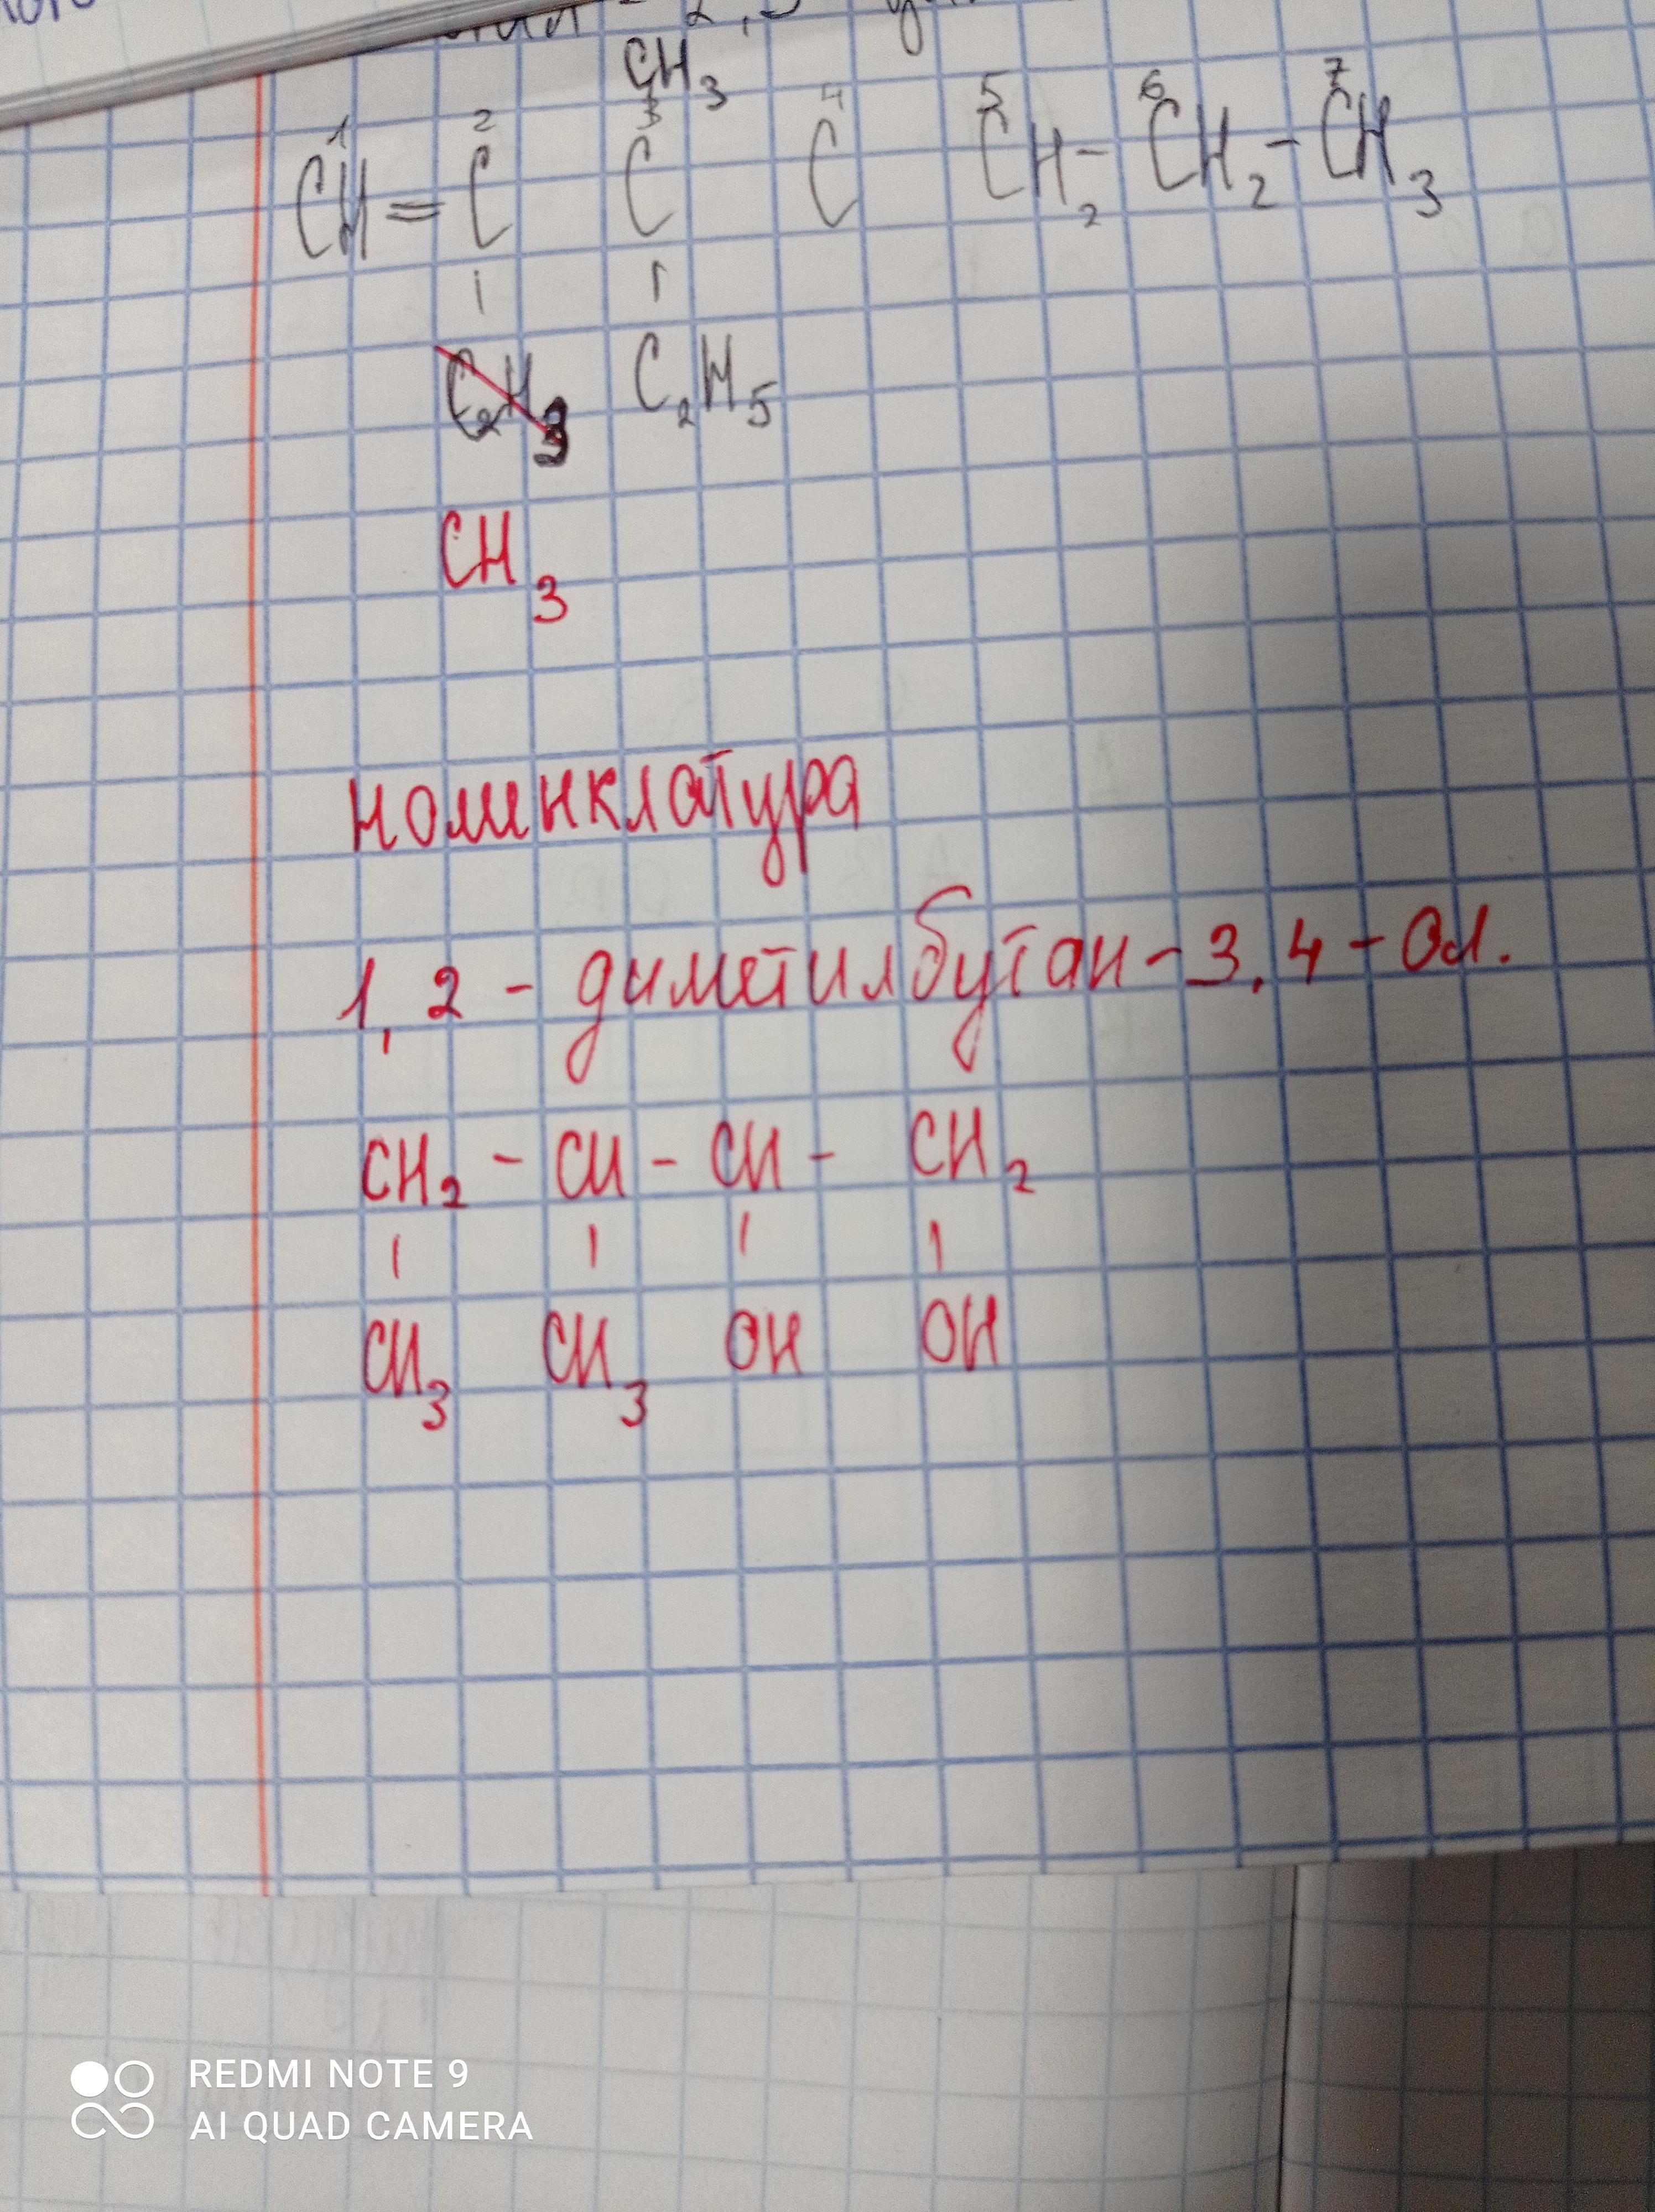 CH3
1 2 3 4 5 6 7
CH = C C C CH2 - CH2 - CH3
C2H3 C2H5
CH3
номенклатура
1,2 - диметилбутан - 3,4 - ол.
CH2 - CH - CH - CH2
CH3 CH3 OH OH
REDMI NOTE 9
AI QUAD CAMERA